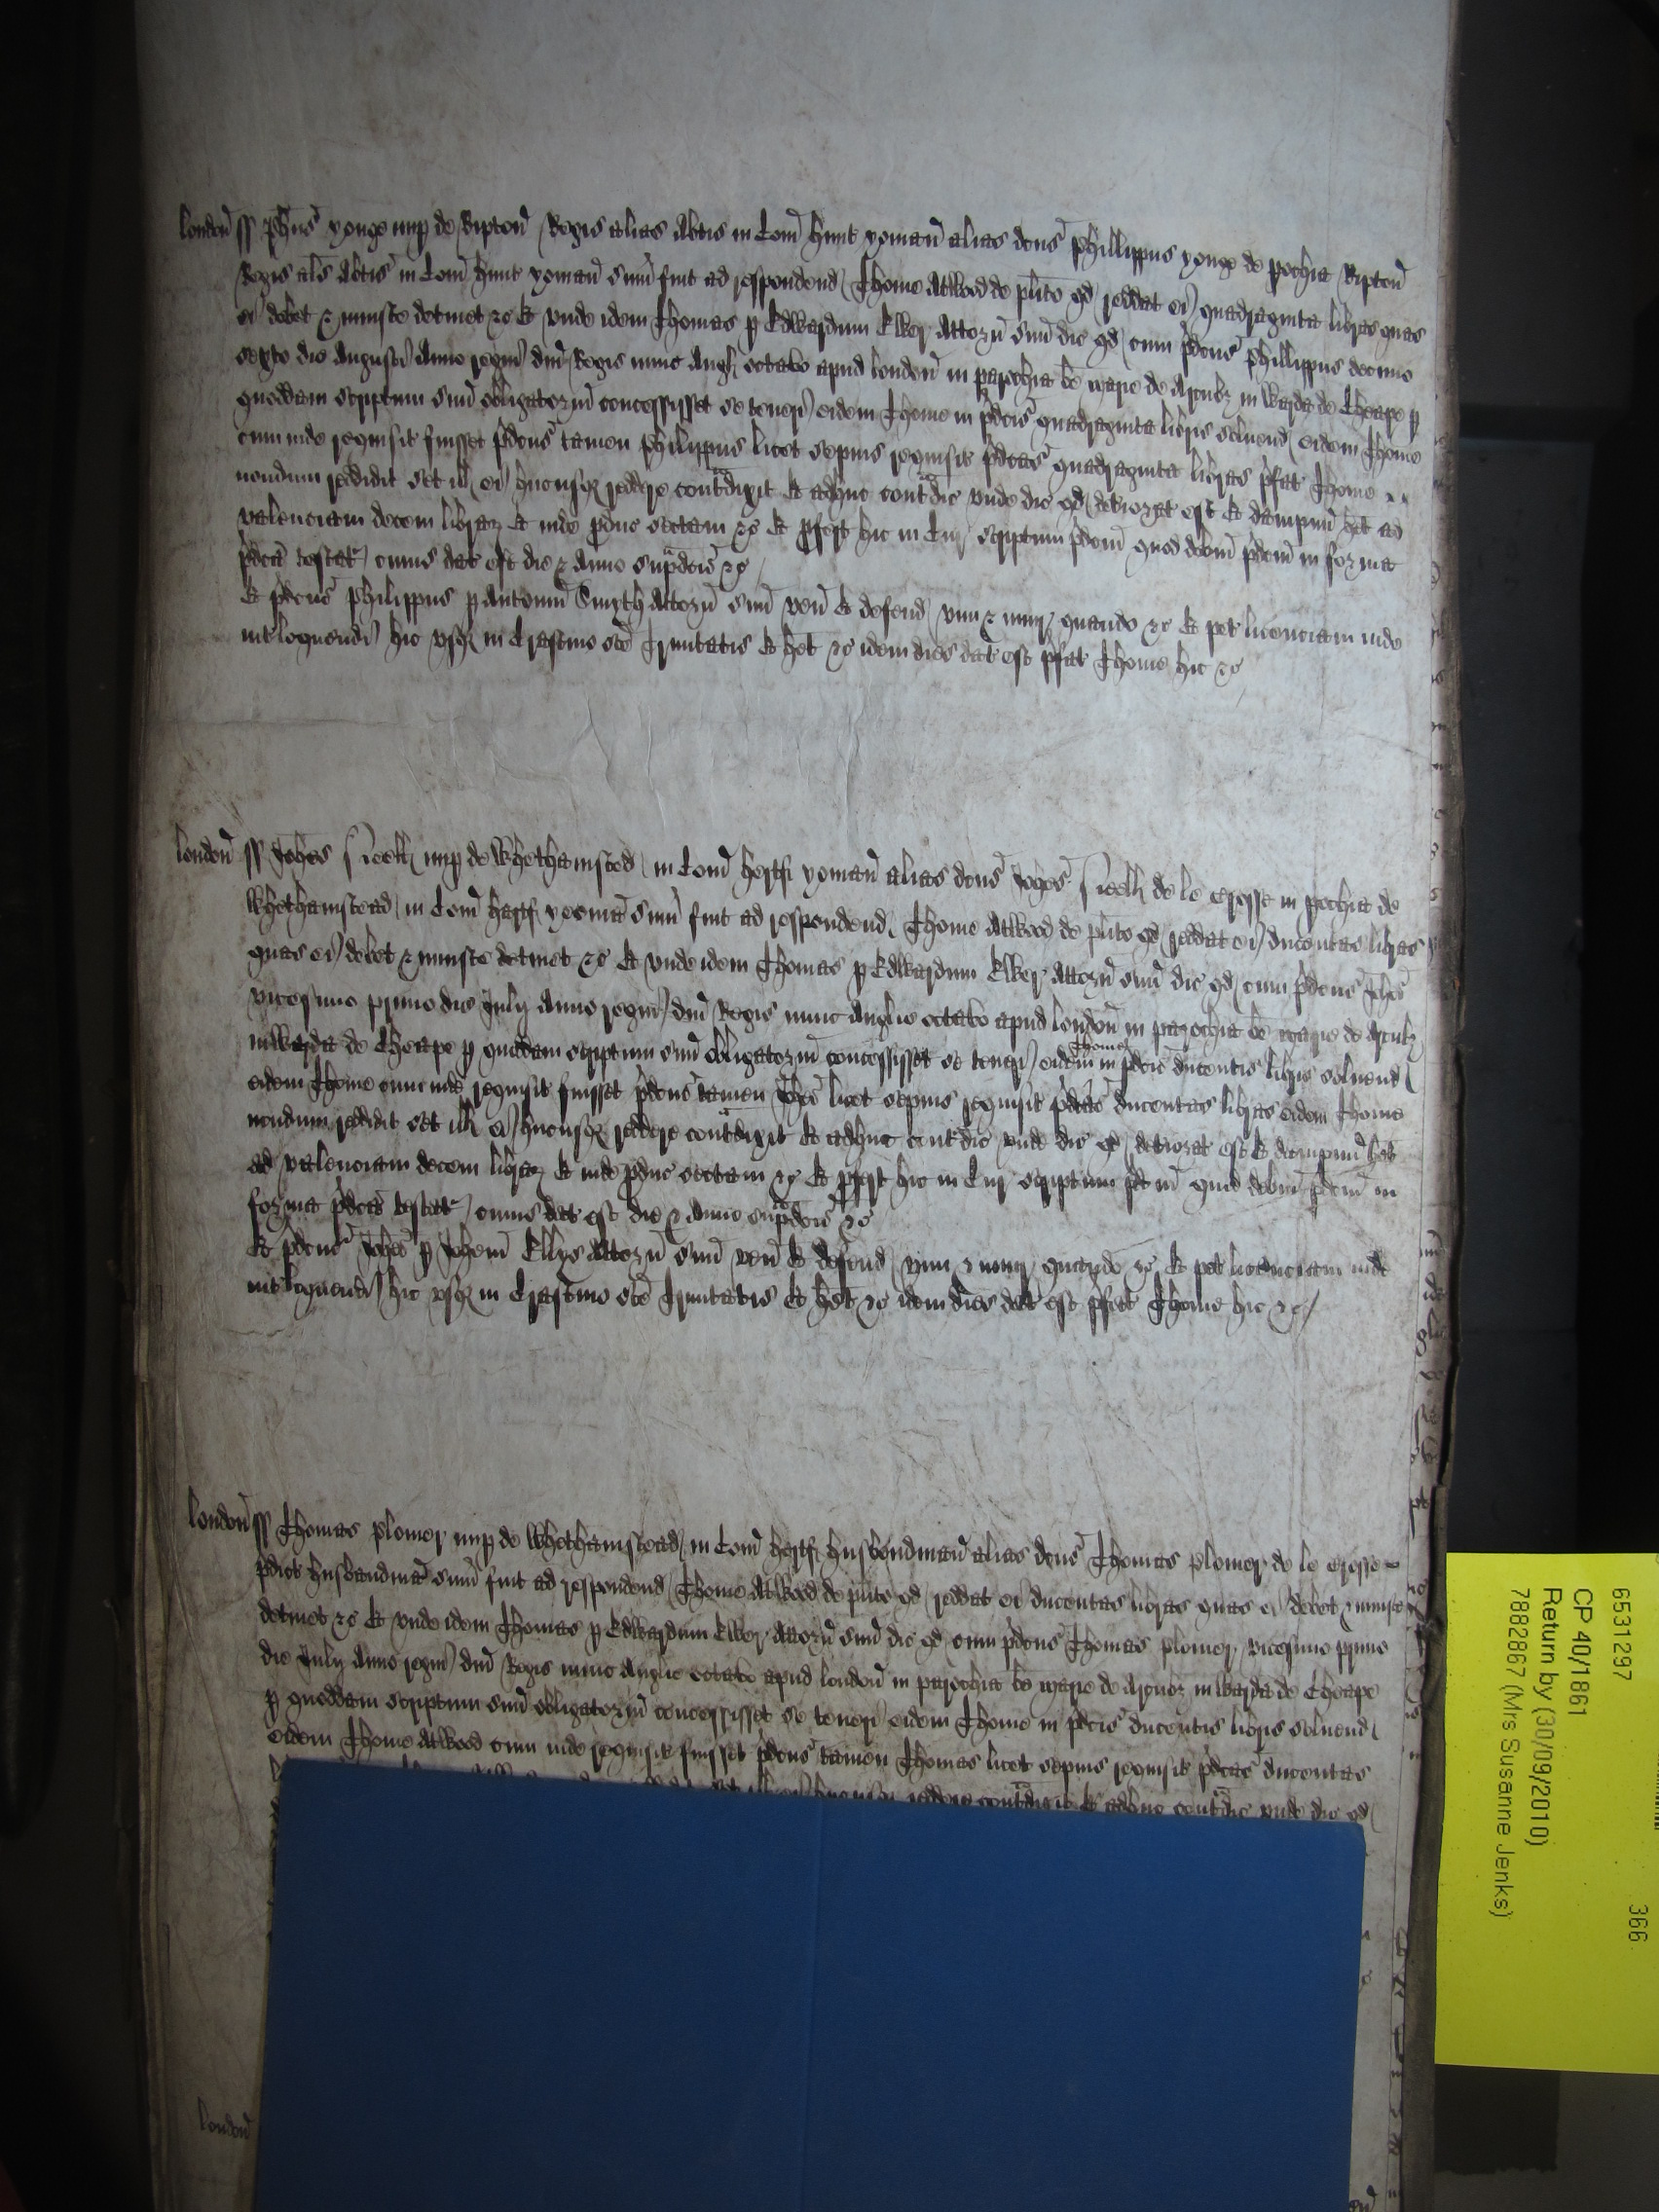 londoñ ss Phus̄ yonge nup de Ripton̄ Regis alias Abtis in Com̄ Hunt yoman̄ alias dcus̄ Phillippus yonge de pochia Ripton̄
Regis als̄ Abtis in Com̄ Hunt yoman̄ sum̄ fuit ad respondend Thome Atwood de plito qd reddat ei quadraginta libras quas
ei debet & iniuste detinet &c Et unde idem Thomas p Edwardum Elmer Attorn̄ suū dic qd cum p̄dcus̄ Phillippus decimo
sexto die Augusti Anno regni dnī Regis nunc Angl octavo apud london̄ in parochia bē marie de Arcubz in Warda de Cheape p
quoddam scriptum suū obligatoriū concessisset se teneri eidem Thome in p̄dcis̄ quadraginta libris solvend eidem Thome
cum inde requisit fuisset p̄dcus̄ tamen Philippus licet sepius requisit p̄dcas̄ quadraginta libras p̄fat Thome
nondum reddidit set ill ei hucusqz reddere contᵃdixit Et adhuc contᵃdic unde dic qd deteriorat est Et dampnū het ad
valenciam decem libraz Et inde pduc sectam &c Et pfert hic in Cur scriptum p̄dcm̄ quod debm̄ p̄dcm̄ in forma
p̄dcā testatr cuius dat est die & Anno sup̄dcis̄ &c
Et p̄dcus̄ Philippus p Antoniū Smyth Attorn̄ suū ven̄ Et defend vim & iniur quando &c Et pet licenciam inde
int̄loquendi hic usqz in Crastino scē Trinitatis Et het &c idem dies dat est p̄fat Thome hic &c
londoñ ss Johes̄ nup de Whethamsted in Com̄ Hertf yoman̄ alias dcus̄ Johes̄ de le Crosse in pochia de
Whethamstead in Com̄ Hartf yeoman̄ sum̄ fuit ad respondend Thome Atwood de plito qd reddat ei ducentas libras
quas ei debet & iniuste detinet &c Et unde idem Thomas p Edwardum Elmer Attorn̄ suū dic qd cum p̄dcus̄ Johes̄
vicesimo primo die Julij Anno regni dnī Regis nunc Anglie octavo apud london̄ in parochia bē marie de Arcubz
in Warda de Cheape p quoddam scriptum suū obligatoriū concessisset se teneri eidem Thome in p̄dcis̄ ducentis libris solvend
eidem Thome cum inde requisit fuisset p̄dcus̄ tamen Johes̄ licet sepius requisit p̄dcas̄ ducentas libras eidem Thome
nondum reddidit set ill ei hucusqz reddere contᵃdixit Et adhuc contᵃdic unde dic qd deteriorat est Et dampnū het
ad valenciam decem libraz Et inde pduc sectam &c Et pfert hic in Cur scriptum p̄dcm̄ quod debm̄ p̄dcm̄ in
forma p̄dcā testatr cuius dat est die & Anno sup̄dcis̄ &c
Et p̄dcus̄ Johes̄ p Johem̄ Ellys Attorn̄ suū ven̄ Et defend vim & iniur quando &c Et pet licenciam inde
int̄loquendi hic usqz in Crastino scē Trinitatis Et het &c idem dies dat est p̄fat Thome hic &c
londoñ ss Thomas Plomer nup de Whethamstead in Com̄ Hertf Husbondman̄ alias dcus̄ Thomas Plomer de le Crosse
p̄dict husbandman̄ sum̄ fuit ad respondend Thome Atwood de plito qd reddat ei ducentas libras quas ei debet & iniuste
detinet &c Et unde idem Thomas p Edwardum Elmer Attorn̄ suū dic qd cum p̄dcus̄ Thomas Plomer vicesimo primo
die Julij Anno regni dnī Regis nunc Anglie octavo apud london̄ in parochia bē marie de Arcubz in Warda de Cheape
p quoddam scriptum suū obligatoriū concessisset se teneri eidem Thome in p̄dcis̄ ducentis libris solvend
eidem Thome Atwood cum inde requisit fuisset p̄dcus̄ tamen Thomas licet sepius requisit p̄dcas̄ ducentas
hucusqz reddere contᵃdixit Et adhuc contᵃdic unde dic qd
londoñ
6531297 366
CP 40/1861
Return by (30/09/2010)
7882867 (Mrs Susanne Jenks)